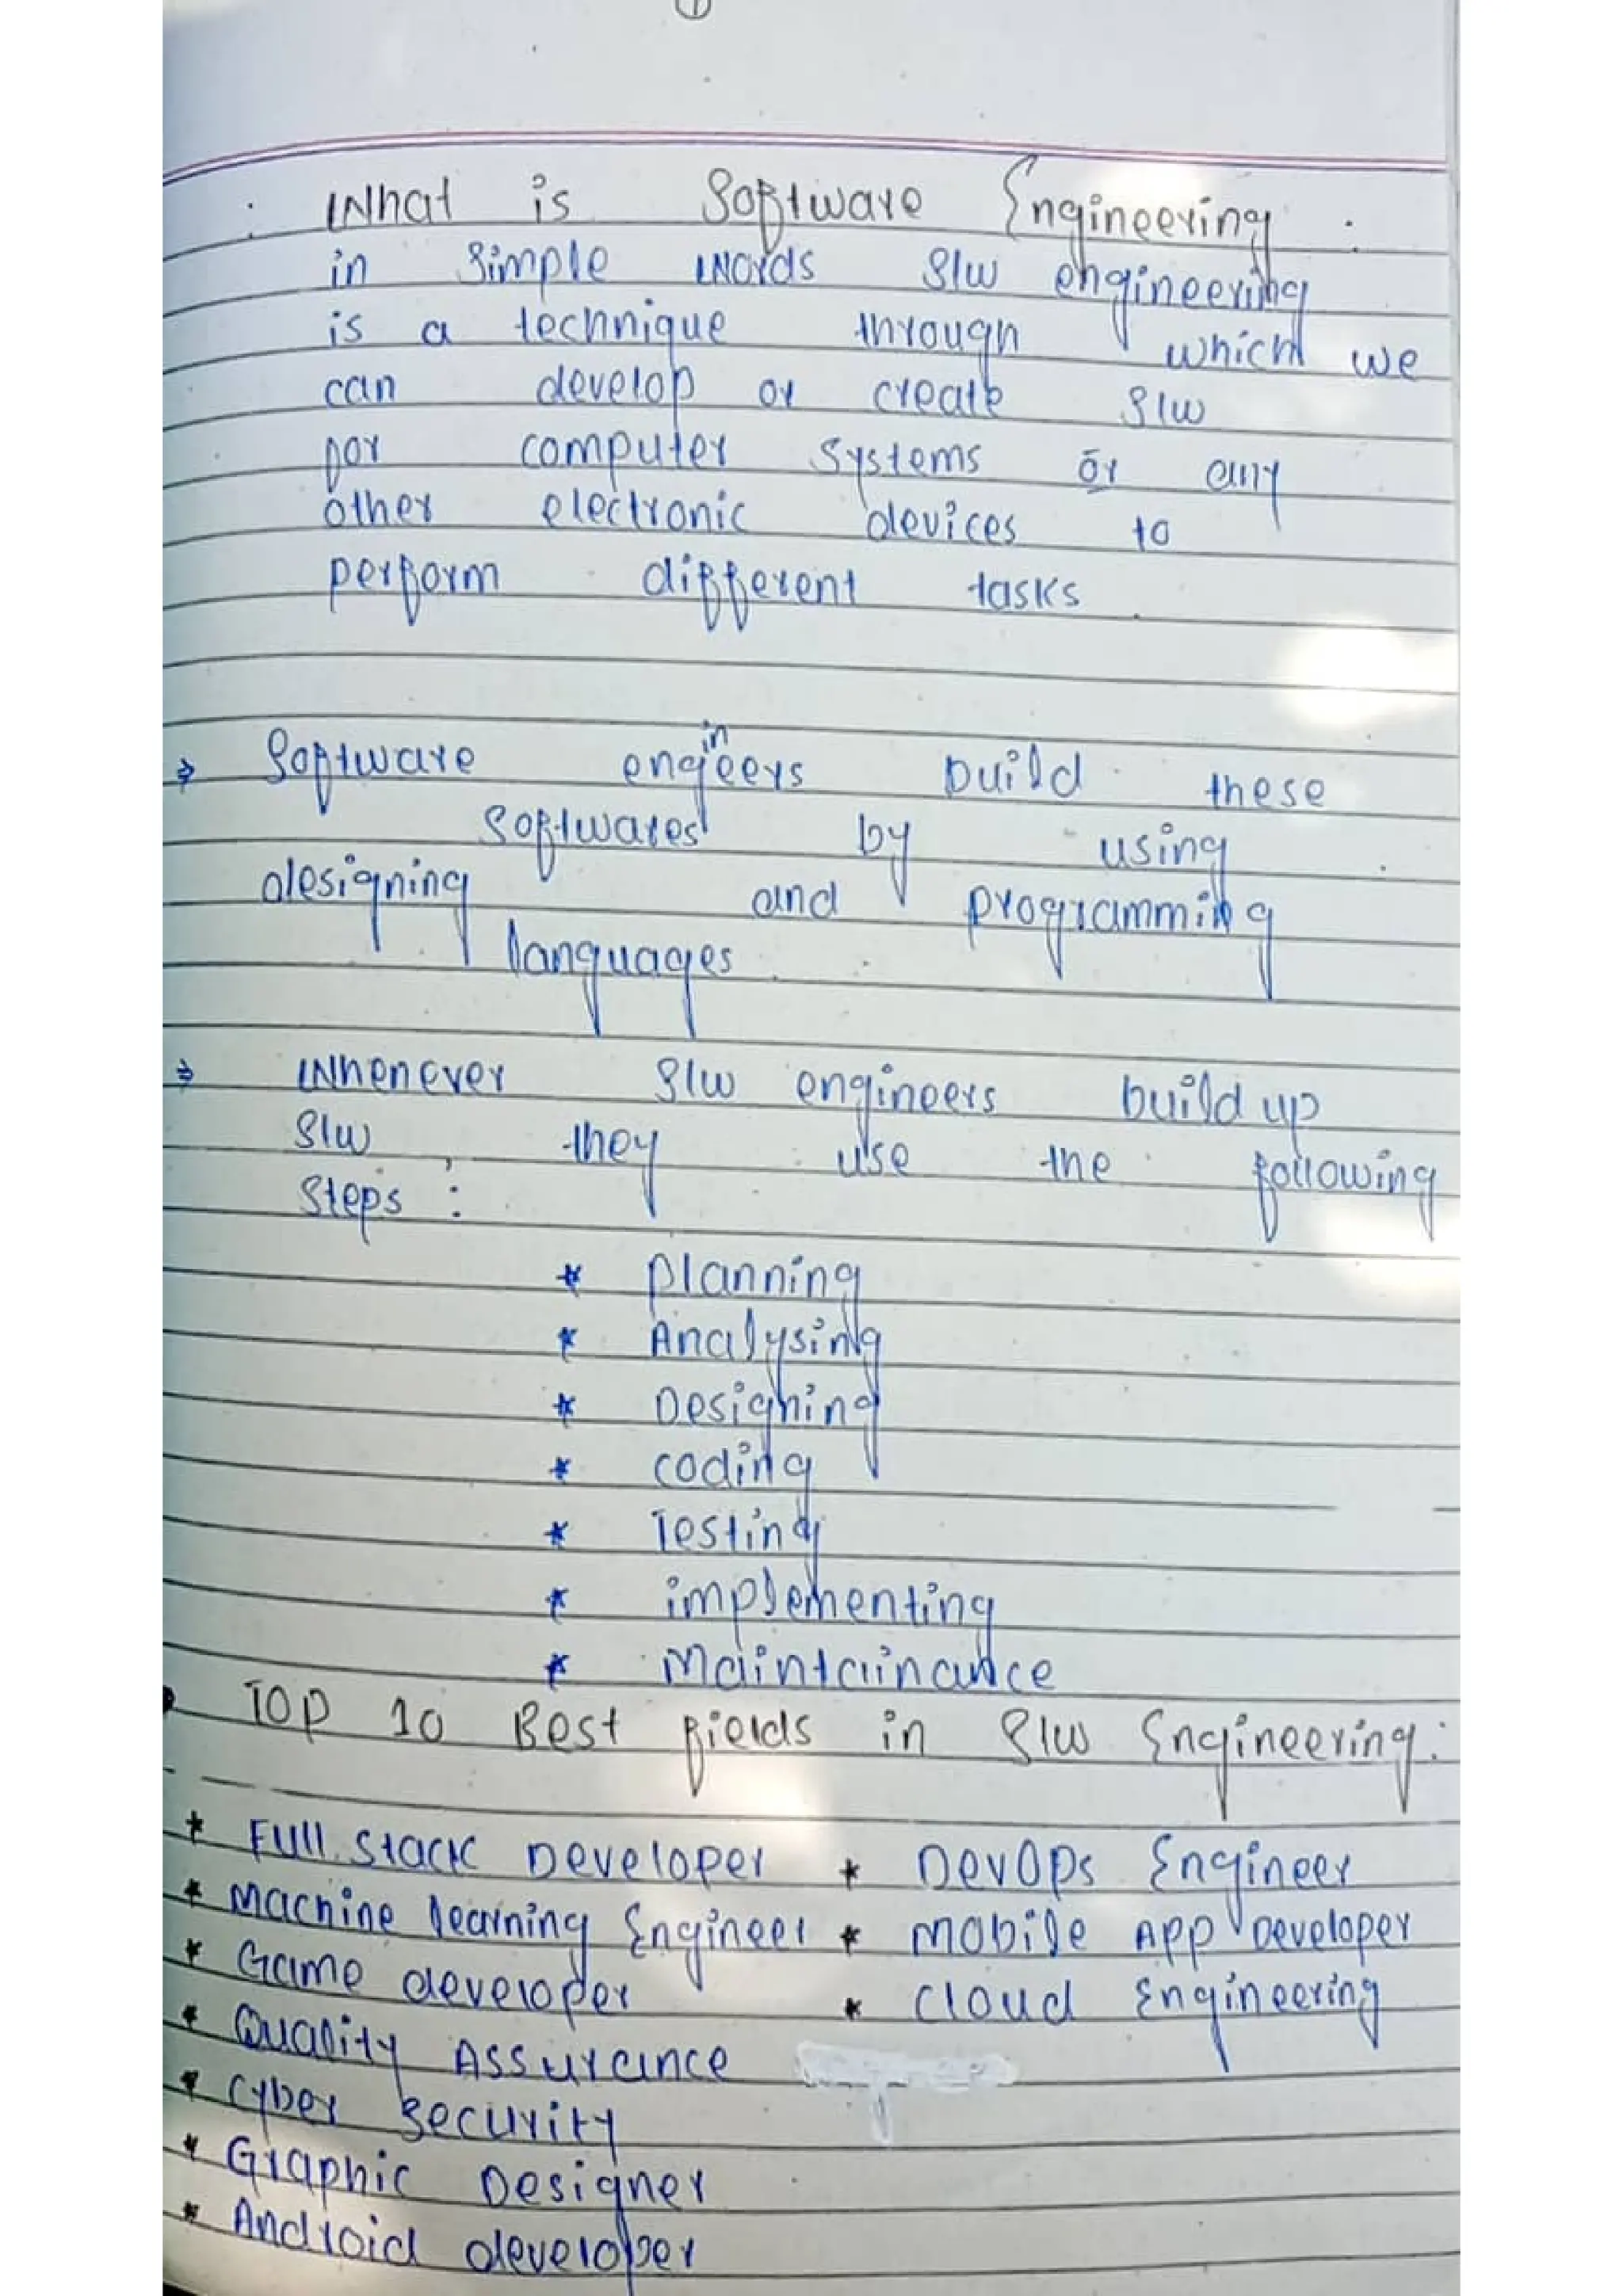 ①
: What is Software Engineering :
in simple words S/w engineering
is a technique through which we
can develop or create S/w
for computer systems or any
other electronic devices to
perform different tasks.
⇒ Software engineers build these
softwares by using
designing and programming
languages.
⇒ Whenever S/w engineers build up
S/w, they use the following
Steps :
* Planning
* Analysing
* Designing
* coding
* Testing
* implementing
* Maintainance
Top 10 Best fields in S/w Engineering :
* Full Stack Developer * DevOps Engineer
* Machine learning Engineer * Mobile App Developer
* Game developer * Cloud Engineering
* Quality Assurance
* Cyber Security
* Graphic Designer
* Android developer